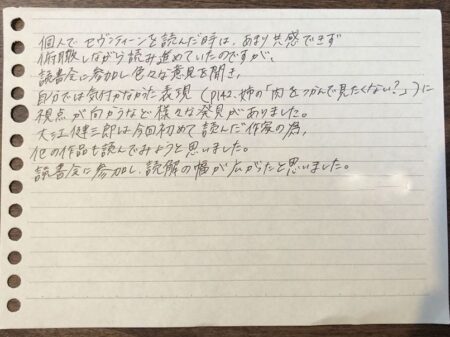 個人でセヴンティーンを読んだ時は、あまり共感できず
俯瞰しながら読み進めていたのですが、
読書会に参加し色々な意見を聞き、
自分では気付かなかった表現(P142、姉の「肉をつかんで見たくない?」)に
視点が向かうなど様々な発見がありました。
大江健三郎は今回初めて読んだ作家の為、
他の作品も読んでみようと思いました。
読書会に参加し、読解の幅が広がったと思いました。